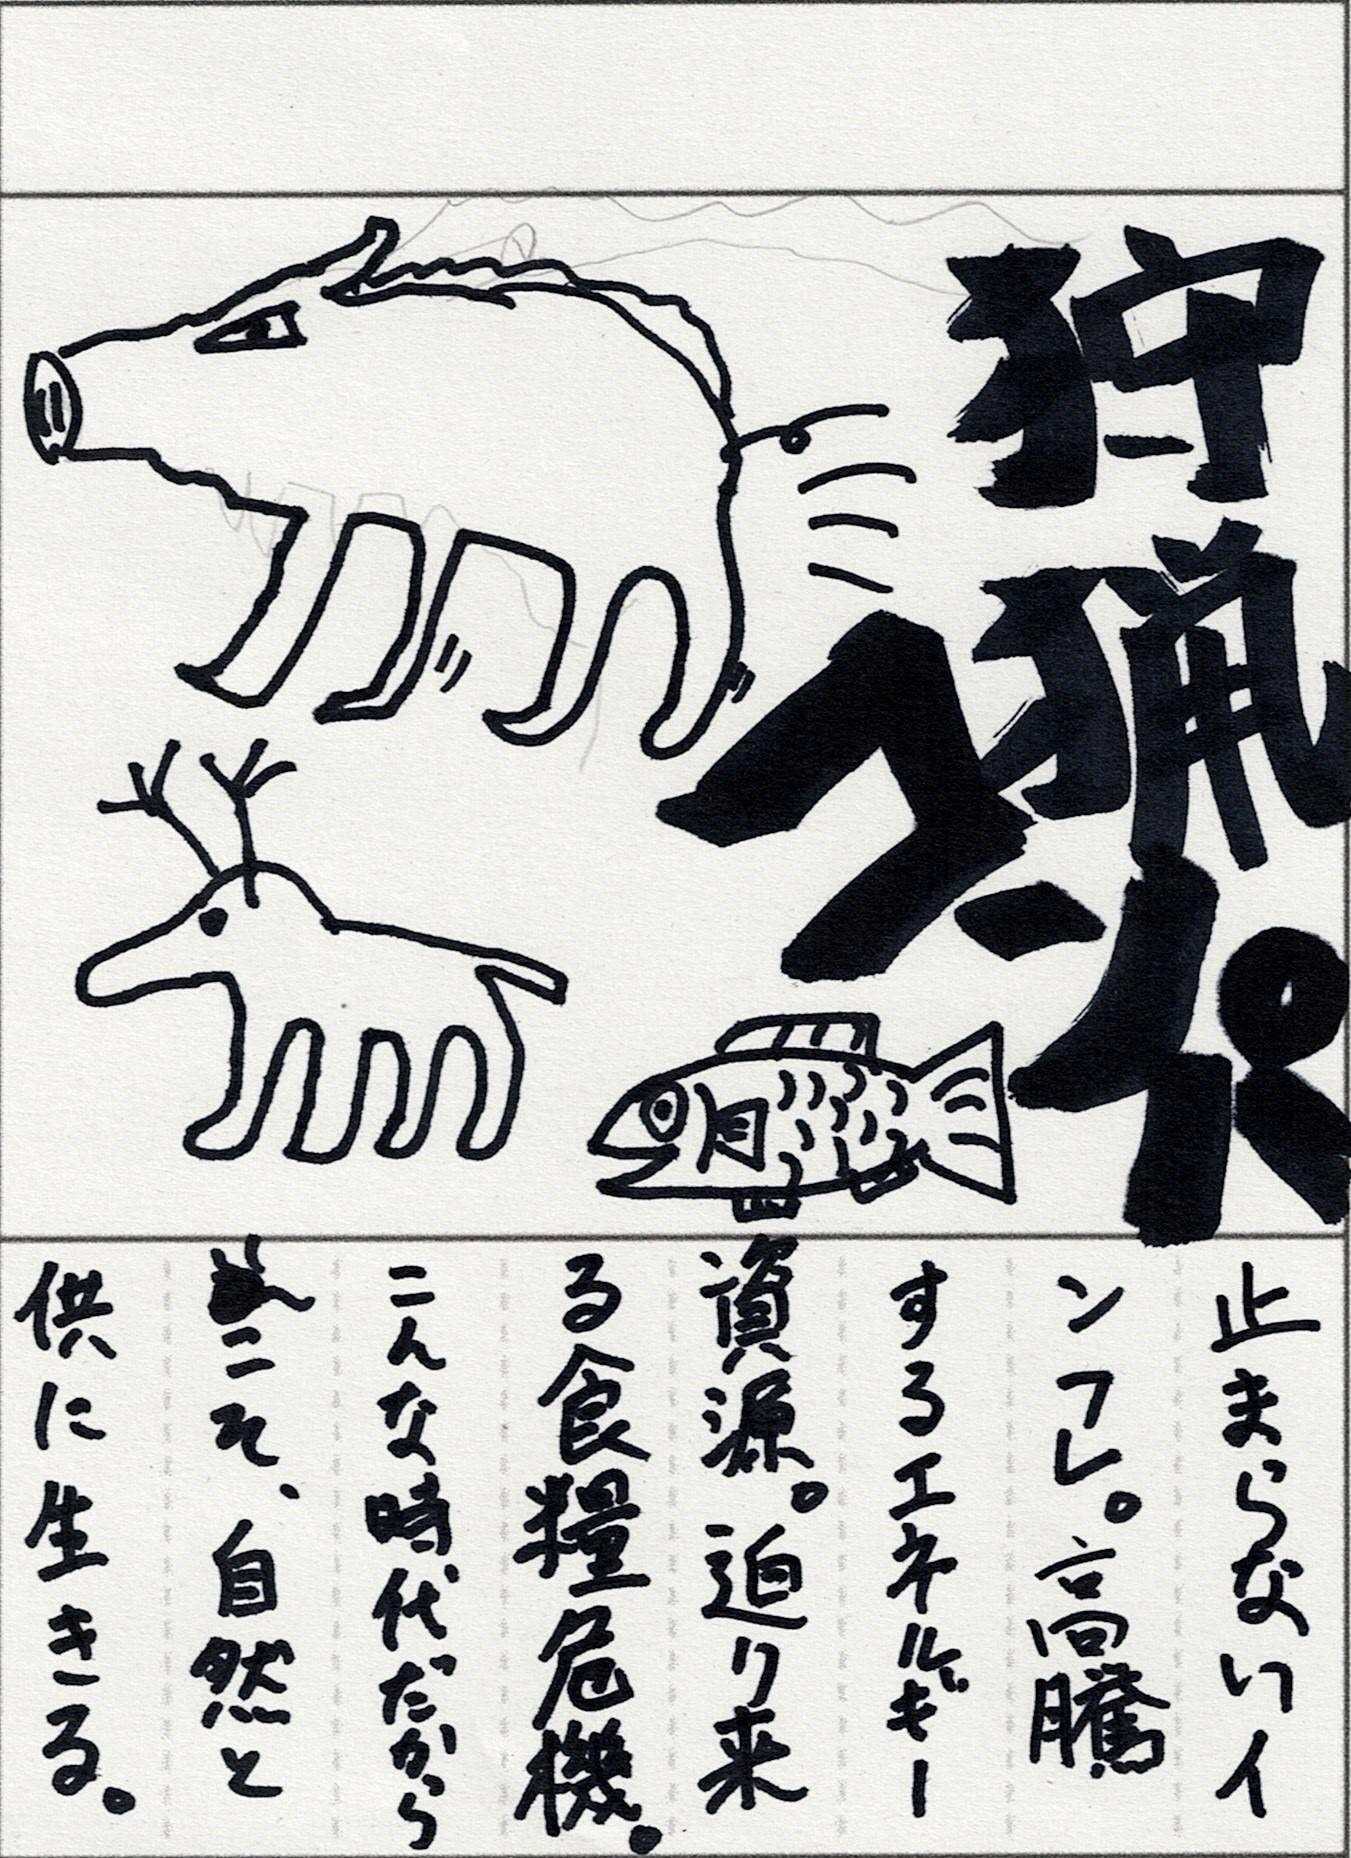 狩猟
スーパー
止まらないイ
ンフレ。高騰
するエネルギー
資源。迫り来
る食糧危機。
こんな時代だから
こそ、自然と
供に生きる。